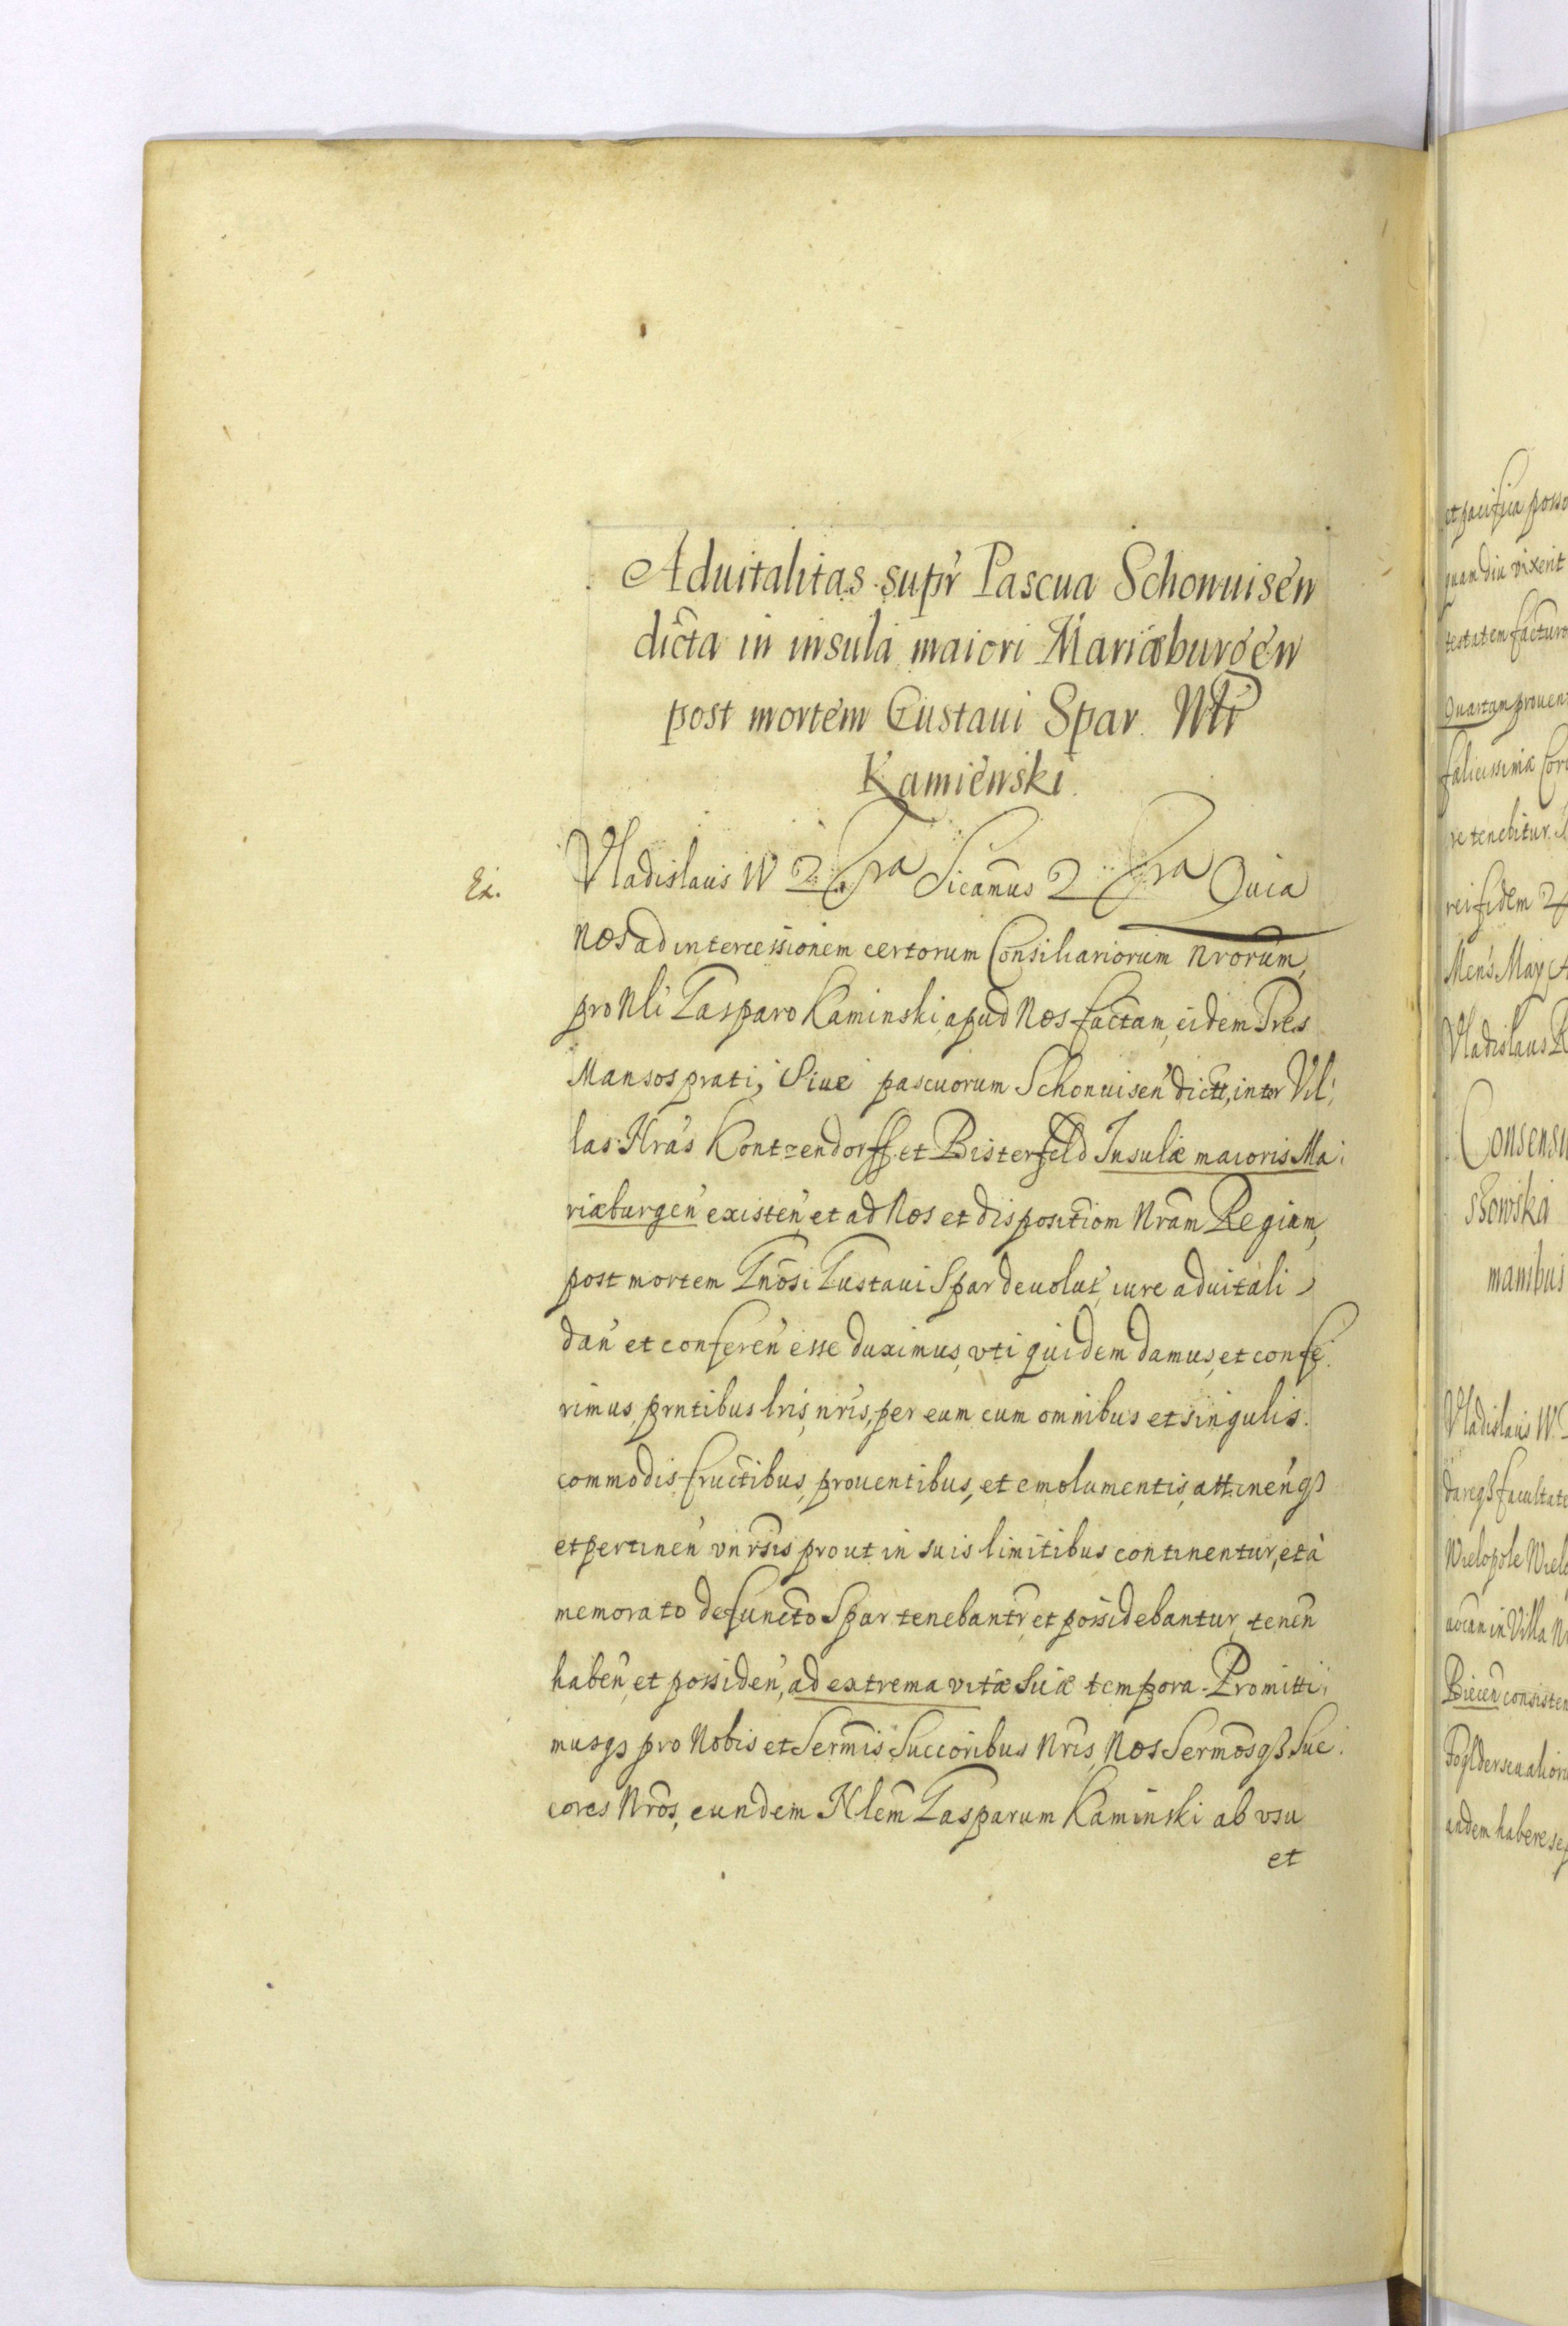 Aduitalitas supr Pascua Schonuisen
dicta in insula maiori Mariæburgen
post mortem Gustaui Spar. Nli
Kamienski.
Ex.
Vladislaus IV 2 Sicamus 2 Quia
Nos ad intercessionem certorum Consiliariorum Nrorum,
pro Nli Gasparo Kaminski, apud Nos factam, eidem Tres
Mansos prati, Siue pascuorum Schonuisen dict, inter Vil:
las Nras Kontzendorff et Bisterfeld Insulæ maioris Ma:
riæburgen existen et ad Nos et dispositiom Nram Regiam,
post mortem Gnosi Gustaui Spar deuolut, iure aduitali
dan et conferen esse duximus, vti quidem damus, et confe:
rimus, prntibus lris, nris, per eum cum omnibus et singulis.
commodis fructibus, prouentibus, et emolumentis, attinenqз
et pertinen vnrsis prout in suis limitibus continentur, et à
memorato defuncto Spar tenebantr et possidebantur, tenen
haben, et possiden, ad extrema vitæ suæ tempora. Promitti:
musqз pro Nobis et Sermis Succoribus Nris, Nos Sermosqз Suc:
cores Nros, eundem Nlem Gasparum Kaminski ab vsu
et
et pacifica posso
quam diu vixerit
testatem facturo
Quartam prouen
re tenebitur.
rei fidem
Mens May A
Vladislaus R
Consensu
manibus
Vladislaus IV
facultate
Wielopole Wielo
in Villa N
Biecen consisten
seu alioru
habere